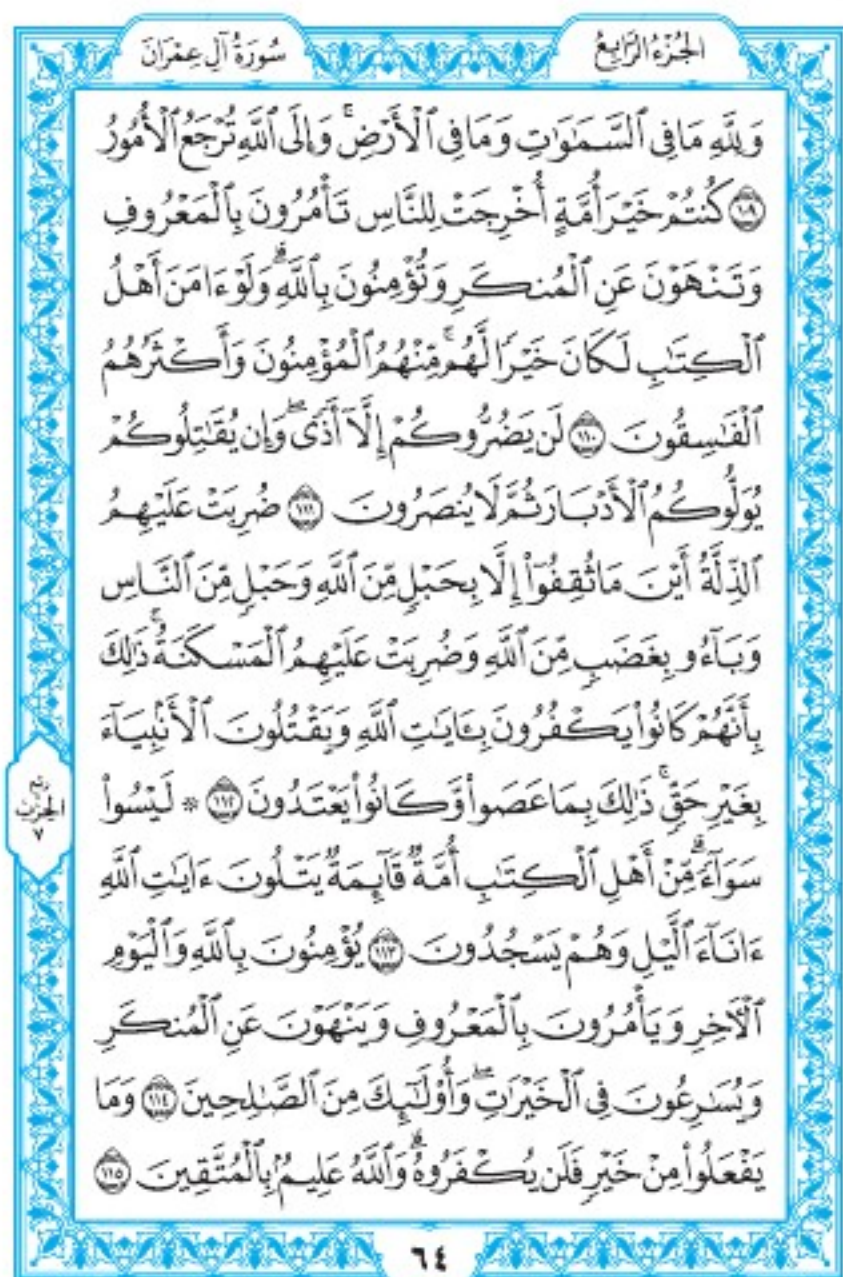 الجُزْءُ الرَّابِعُ
سُورَةُ آلِ عِمْرَانَ
وَلِلَّهِ مَا فِي ٱلسَّمَٰوَٰتِ وَمَا فِي ٱلْأَرْضِۚ وَإِلَى ٱللَّهِ تُرْجَعُ ٱلْأُمُورُ
١٠٩ كُنتُمْ خَيْرَ أُمَّةٍ أُخْرِجَتْ لِلنَّاسِ تَأْمُرُونَ بِٱلْمَعْرُوفِ
وَتَنْهَوْنَ عَنِ ٱلْمُنكَرِ وَتُؤْمِنُونَ بِٱللَّهِۗ وَلَوْ ءَامَنَ أَهْلُ
ٱلْكِتَٰبِ لَكَانَ خَيْرًا لَّهُمۚ مِّنْهُمُ ٱلْمُؤْمِنُونَ وَأَكْثَرُهُمُ
ٱلْفَٰسِقُونَ ١١٠ لَن يَضُرُّوكُمْ إِلَّآ أَذًىۖ وَإِن يُقَٰتِلُوكُمْ
يُوَلُّوكُمُ ٱلْأَدْبَارَ ثُمَّ لَا يُنصَرُونَ ١١١ ضُرِبَتْ عَلَيْهِمُ
ٱلذِّلَّةُ أَيْنَ مَا ثُقِفُوٓا۟ إِلَّا بِحَبْلٍ مِّنَ ٱللَّهِ وَحَبْلٍ مِّنَ ٱلنَّاسِ
وَبَآءُو بِغَضَبٍ مِّنَ ٱللَّهِ وَضُرِبَتْ عَلَيْهِمُ ٱلْمَسْكَنَةُۚ ذَٰلِكَ
بِأَنَّهُمْ كَانُوا۟ يَكْفُرُونَ بِـَٔايَٰتِ ٱللَّهِ وَيَقْتُلُونَ ٱلْأَنۢبِيَآءَ
بِغَيْرِ حَقٍّۚ ذَٰلِكَ بِمَا عَصَوا۟ وَّكَانُوا۟ يَعْتَدُونَ ١١٢ * لَيْسُوا۟
سَوَآءًۗ مِّنْ أَهْلِ ٱلْكِتَٰبِ أُمَّةٌ قَآئِمَةٌ يَتْلُونَ ءَايَٰتِ ٱللَّهِ
ءَانَآءَ ٱلَّيْلِ وَهُمْ يَسْجُدُونَ ١١٣ يُؤْمِنُونَ بِٱللَّهِ وَٱلْيَوْمِ
ٱلْءَاخِرِ وَيَأْمُرُونَ بِٱلْمَعْرُوفِ وَيَنْهَوْنَ عَنِ ٱلْمُنكَرِ
وَيُسَٰرِعُونَ فِي ٱلْخَيْرَٰتِۖ وَأُو۟لَٰٓئِكَ مِنَ ٱلصَّٰلِحِينَ ١١٤ وَمَا
يَفْعَلُوا۟ مِنْ خَيْرٍ فَلَن يُكْفَرُوهُۗ وَٱللَّهُ عَلِيمٌۢ بِٱلْمُتَّقِينَ ١١٥
ربع
الحزب
٧
٦٤